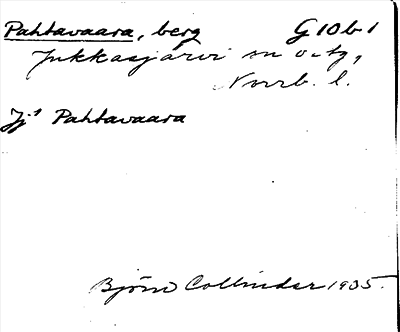 Pahtavaara, berg G10b1
Jukkasjärvi sn o. tg,
Norrb. l.
Jj¹ Pahtavaara
Björn Collinder 1935.